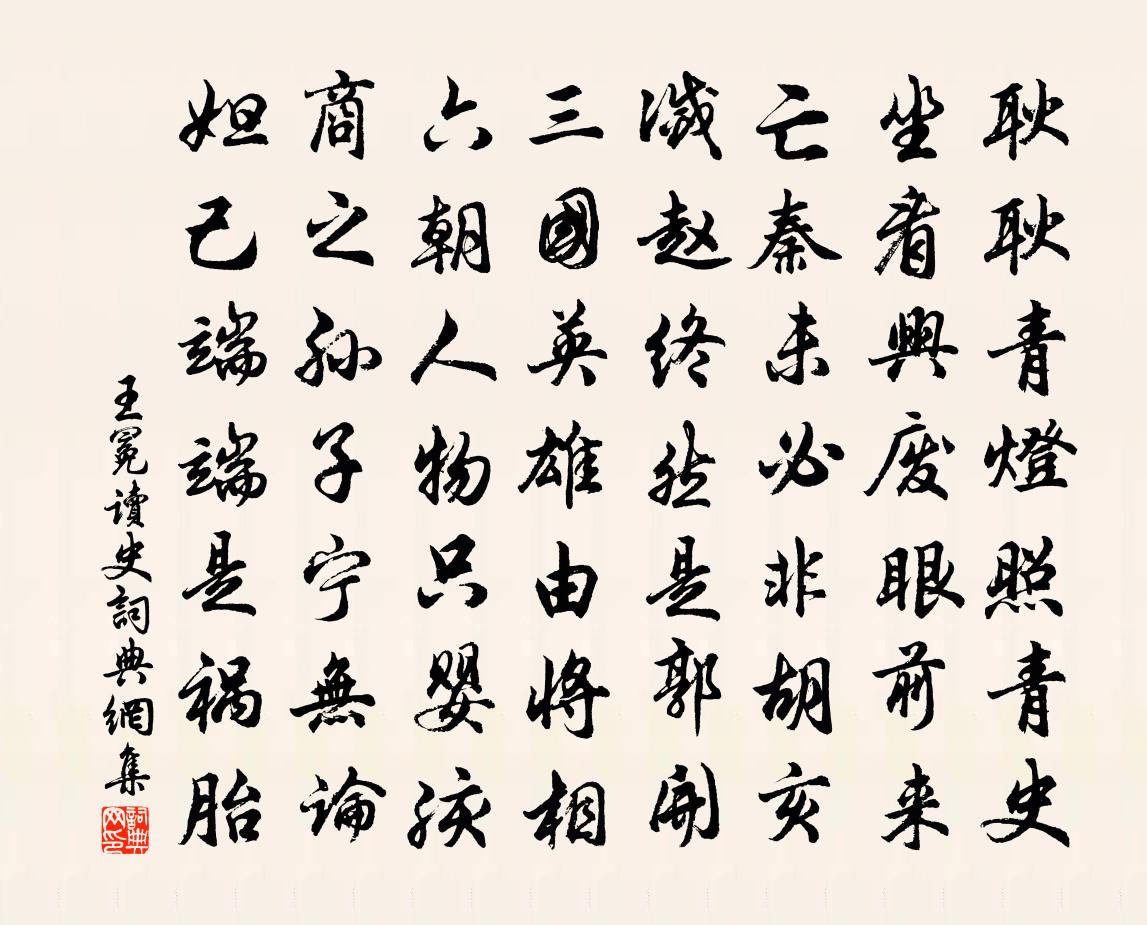 耿耿青燈照青史
坐看興废眼前来
亡秦未必非胡亥
滅赵终然是郭開
三國英雄由將相
六朝人物只嬰孩
商之孙子宁無論
妲己端端是祸胎
王冕讀史詞典網集
詞典网印